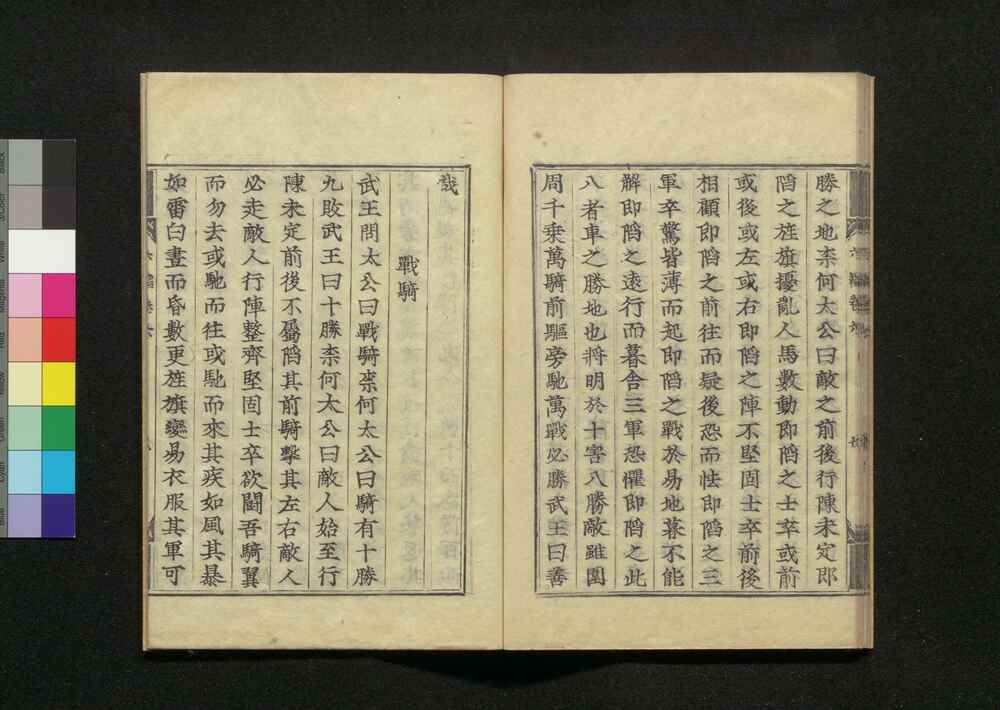 勝之地柰何太公曰敵之前後行陳未定即
陷之旌旗擾亂人馬數動即陷之士卒或前
或後或左或右即陷之陣不堅固士卒前後
相顧即陷之前往而疑後恐而怯即陷之三
軍卒驚皆薄而起即陷之戰於易地暮不能
解即陷之遠行而暮舍三軍恐懼即陷之此
八者車之勝地也將明於十害八勝敵雖圍
周千乗萬騎前驅旁馳萬戰必勝武王曰善
哉
戰騎
武王問太公曰戰騎柰何太公曰騎有十勝
九敗武王曰十勝柰何太公曰敵人始至行
陳未定前後不屬陷其前騎擊其左右敵人
必走敵人行陣整齊堅固士卒欲鬪吾騎翼
而勿去或馳而往或馳而來其疾如風其暴
如雷白晝而昏數更旌旗變易衣服其軍可